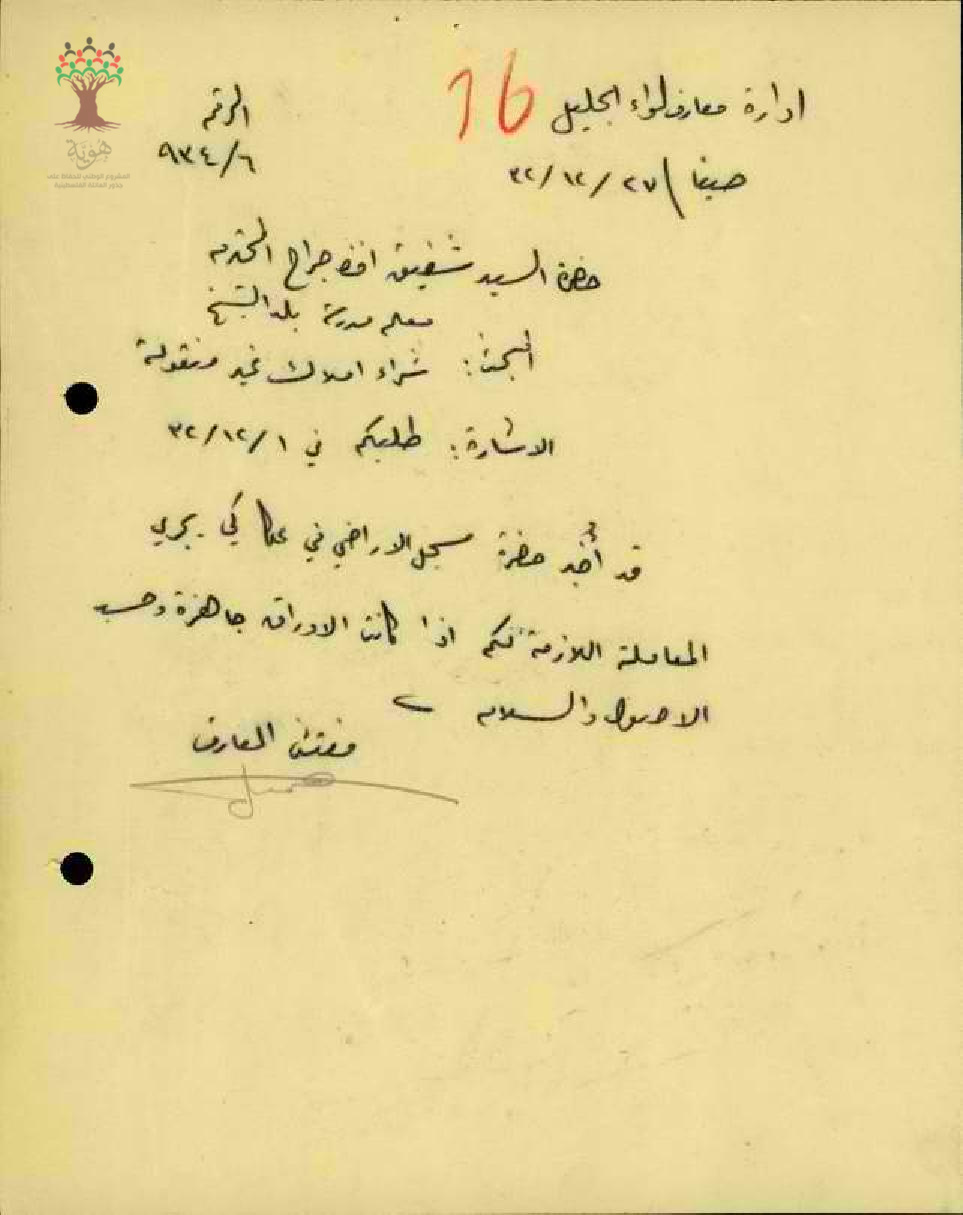 هوية
المشروع الوطني للحفاظ على
جذور العائلة الفلسطينية
ادارة معارف لواء الجليل
16
الرقم
٩٣٤/٦
حيفا / ٢٧/١٢/٣٢
حضرة السيد شفيق افندي جراح المحترم
معلم مدرسة بلد الشيخ
المبحث: شراء املاك غير منقولة
الاشارة: طلبكم في ٣٢/١٢/١
قد أُخبر حضرة مسجل الاراضي في عكا كي يجري
المعاملة اللازمة لكم اذا كانت الاوراق جاهزة وحسب
الاصول والسلام
مفتش المعارف